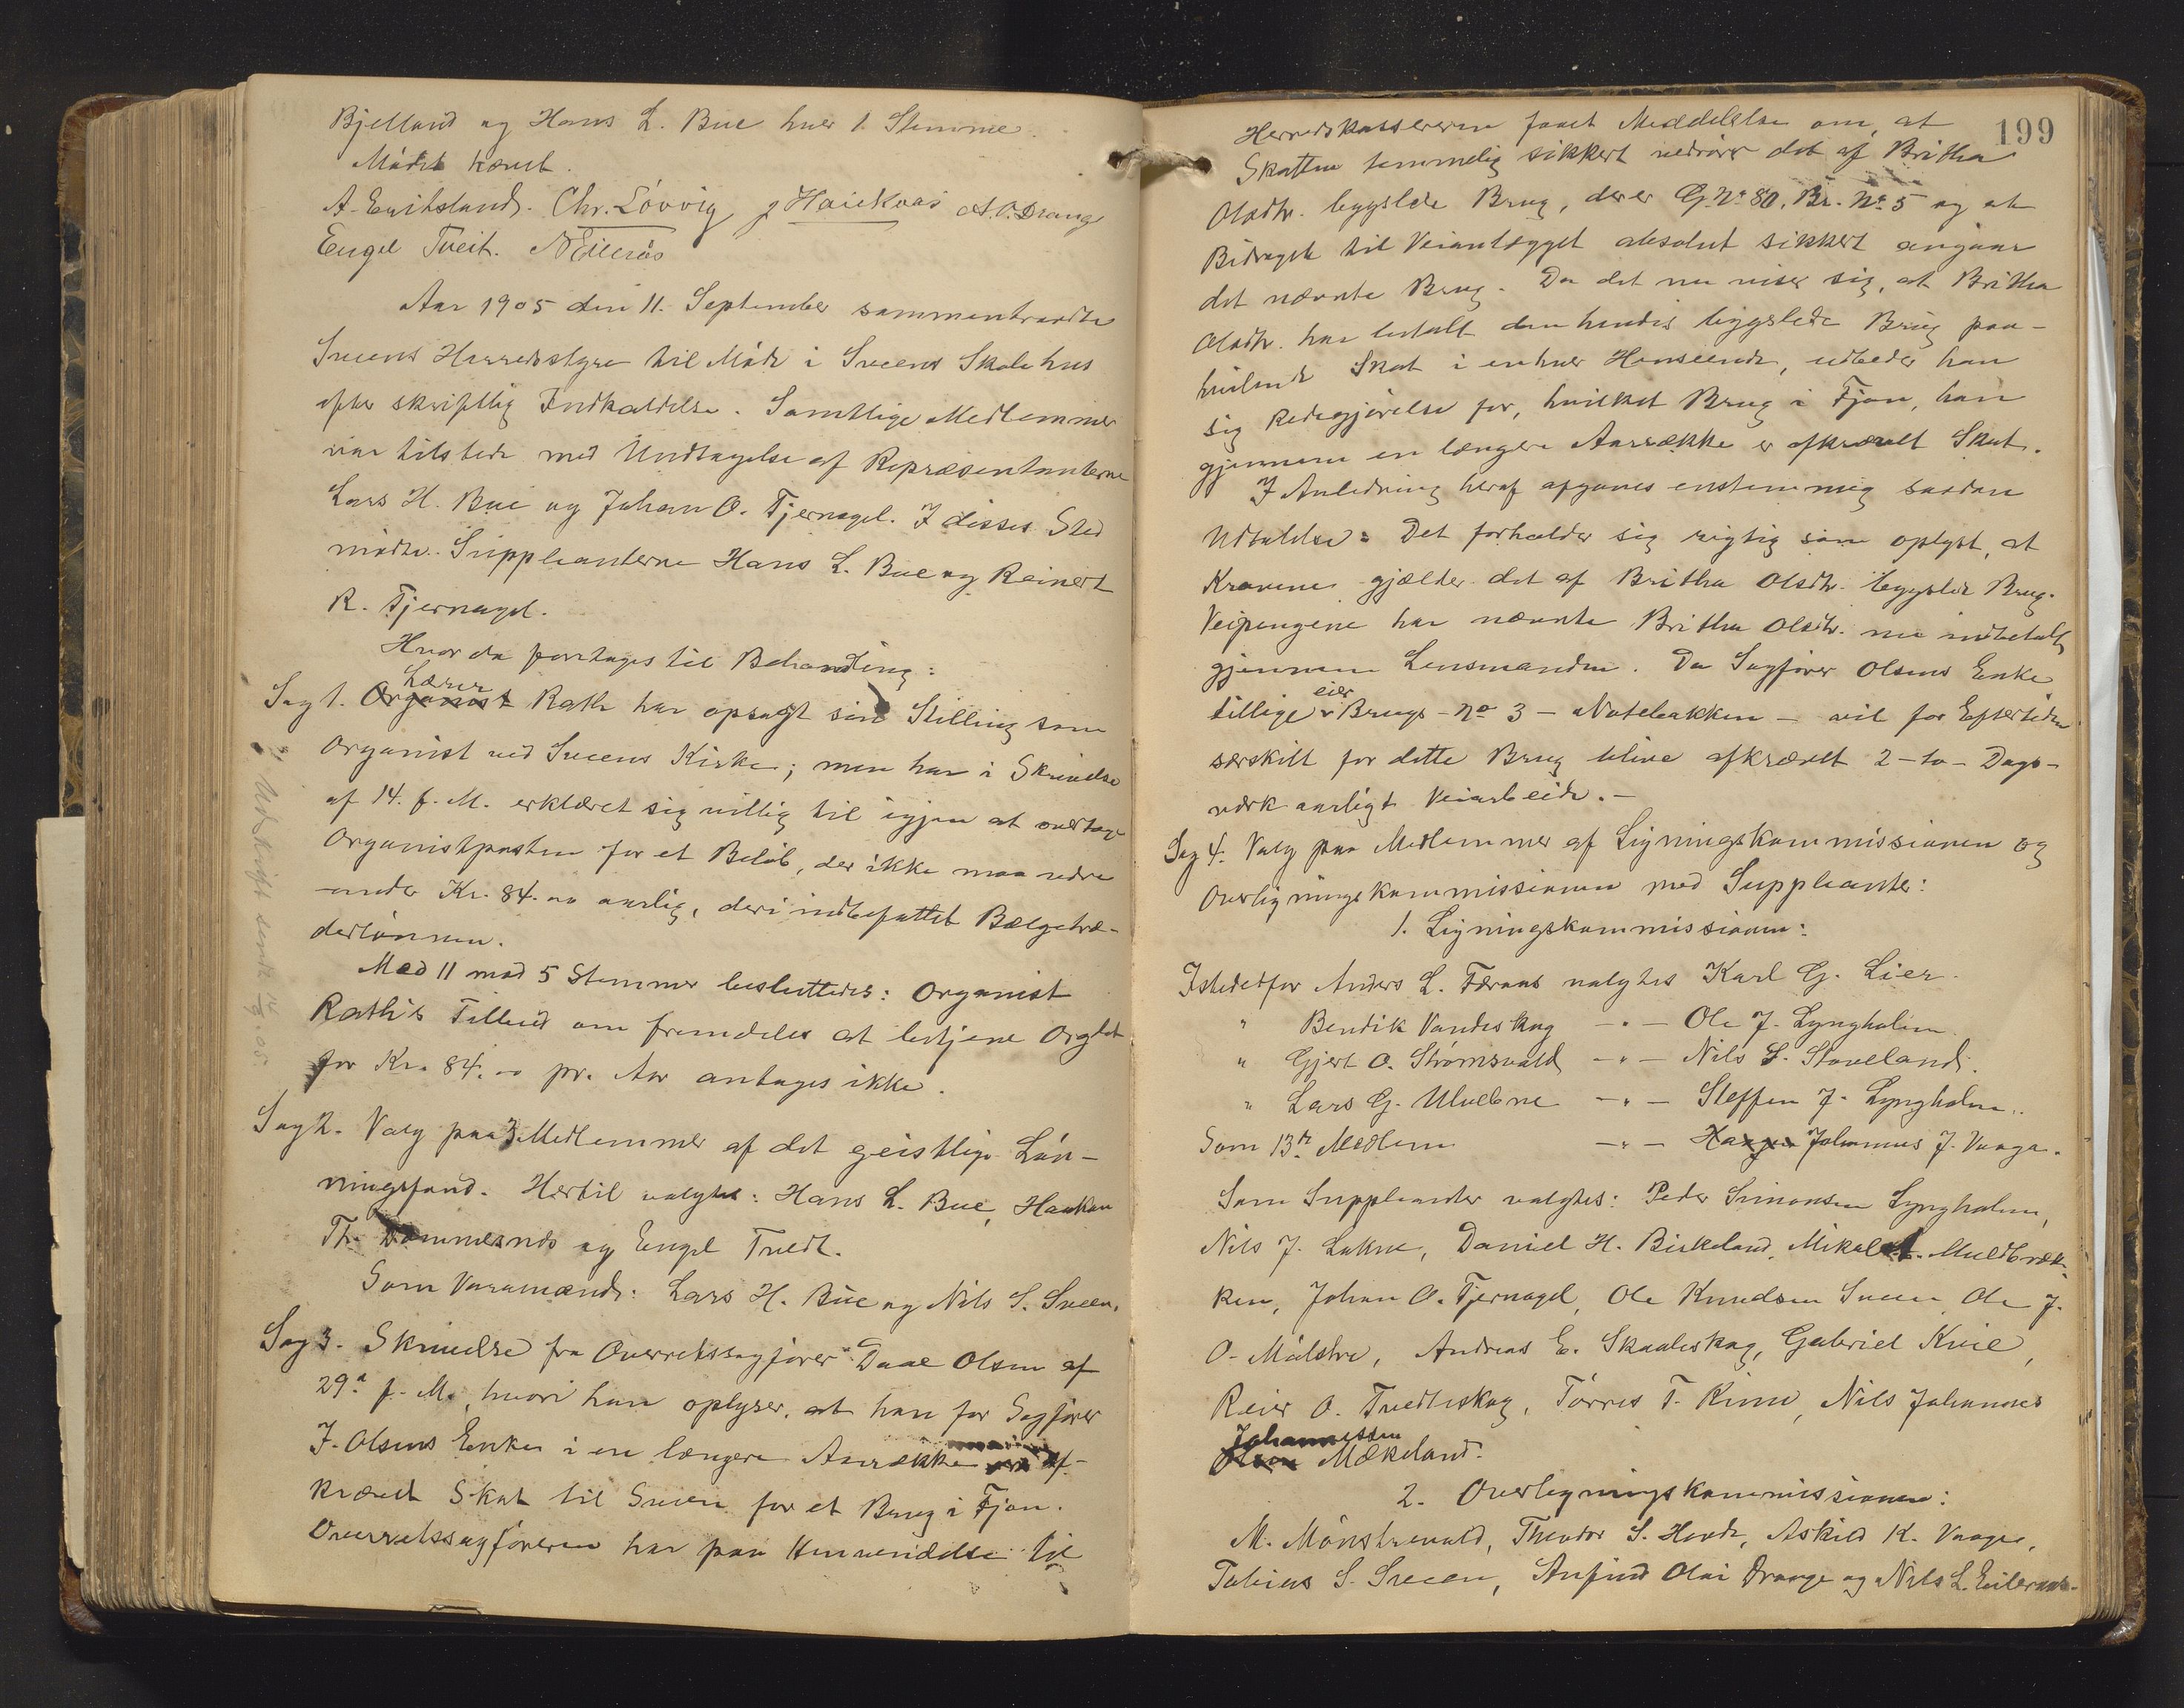 Bjelland og Hans L. Bue hver 1. Stemme.
Mødet hævet.
A. Emhjelland. Chr. Løvvig J Haickvas A. O. Drange
Engel Tveit. N Eilerøs
Aar 1905 den 11. September sammentraadte
Sveens Herredsstyre til Møde i Sveens Skolehus
efter skriftlig Indkaldelse. Samtlige Medlemmer
var tilstede med Undtagelse af Repræsentanterne
Lars H. Bue og Johan O. Tjernagel. I disses Sted
mødte Suppleanterne Hans L. Bue og Reinert
R. Tjernagel.
Hvor da foretages til Behandling:
Lærer
Sag 1. Organist Rath har opsagt sin Stilling som
Organist ved Sveens Kirke; men har i Skrivelse
af 14. f. M. erklæret sig villig til igjen at overtage
Organistposten for et Beløb, der ikke maa være
under Kr. 84.00 aarlig, deri indbefattet Bælgetræ-
derlønnen.
Med 11 mod 5 Stemmer besluttedes: Organist
Rath's Tilbud om fremdeles at betjene Orglet
for Kr. 84.00 pr. Aar antages ikke.
Udskrift sendt
Sag 2. Valg paa 3 Medlemmer af det geistlige Løn-
ningsfond. Hertil valgtes: Hans L. Bue, Haakon
Th. Dommersnes og Engel Tvedt.
Som Varamænd: Lars H. Bue og Nils S. Sveen.
Sag 3. Skrivelse fra Overretssagfører Daae Olsen af
29. f. M., hvori han oplyser, at han for Sagfører
J. Olsens Enke i en længere Aarrække af-
krævet Skat til Sveen for et Brug i Fjon.
Overretssagføreren har paa Henvendelse til
199
Herredskassereren faaet Meddelelse om, at
Skatten temmelig sikkert vedrører det af Britha
Olsdtr. bygslede Brug, der er G. No 80. Br. No 5 og at
Bidraget til Veianlægget absolut sikkert angaar
det nævnte Brug. Da det nu viser sig, at Britha
Olsdtr. har betalt den hendes bygslede Brug paa-
hvilende Skat i enhver Henseende, udbeder han
sig Redegjørelse for, hvilket Brug i Fjon, han
gjennem en længere Aarrække er afkrævet Skat.
I Anledning heraf afgaves enstemmig saadan
Udtalelse: Det forholder sig rigtig som oplyst, at
Kravene gjælder det af Britha Olsdtr. bygslede Brug.
Veipengene har nævnte Britha Olsdtr. nu indbetalt
gjennem Lensmanden. Da Sagfører Olsens Enke
eier
tillige Brugs-No 3 - Notebakken - vil for Eftertiden
særskilt for dette Brug blive afkrævet 2 - to - Dags-
værk aarligt Veiarbeide.-
Sag 4. Valg paa Medlemmer af Ligningskommissionen og
Overligningskommissionen med Suppleanter:
1. Ligningskommissionen:
Istedetfor Anders L. Færaas valgtes Karl G. Lier.
" Bendik Vandeskog -"- Ole J. Lyngholm
" Gjert O. Strømsvold -"- Nils S. Staveland.
" Lars G. Ulvebne -"- Steffen J. Lyngholm.
Som 13de Medlem -"- Haagen Johannes J. Vaage.
Som Suppleanter valgtes: Peder Simonsen Lyngholm,
Nils J. Lukne, Daniel H. Birkeland, Mikal Muldbræk-
ken, Johan O. Tjernagel, Ole Knudsen Sveen, Ole J.
O. Mølstre, Andreas E. Skaaleskog, Gabriel Kvie,
Reier O. Tvedteskog, Tørres T. Rinne, Nils Johannes
Johannessen
Olson Mækeland.
2. Overligningskommissionen:
M. Mønstrevold, Theodor S. Hovde, Askild K. Vaage,
Tobias S. Sveen, Anfind Olai Drange og Nils L. Eileraas.